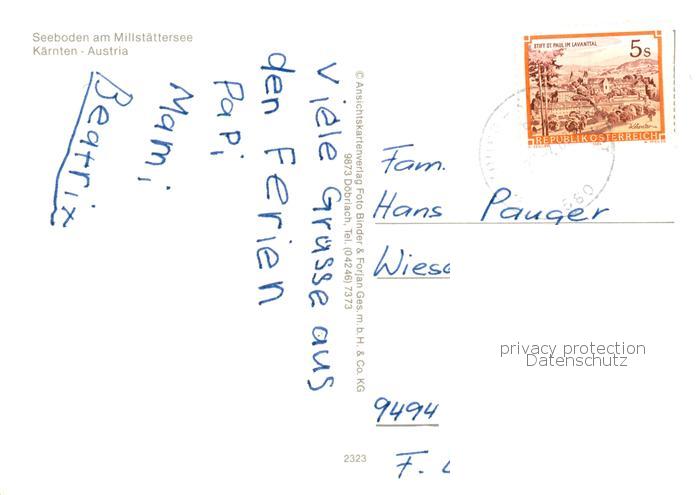 Seeboden am Millstättersee
Kärnten - Austria
Viele Grüsse aus
den Ferien
Papi
Mami
Beatrix
© Ansichtskartenverlag Foto Binder & Forjan Ges. m. b. H. & Co. KG
9873 Döbriach, Tel. (04246) 7373
2323
STIFT ST. PAUL IM LAVANTTAL
5s
REPUBLIK ÖSTERREICH
Fam.
Hans Pauger
Wiese
privacy protection
Datenschutz
9494
F. L